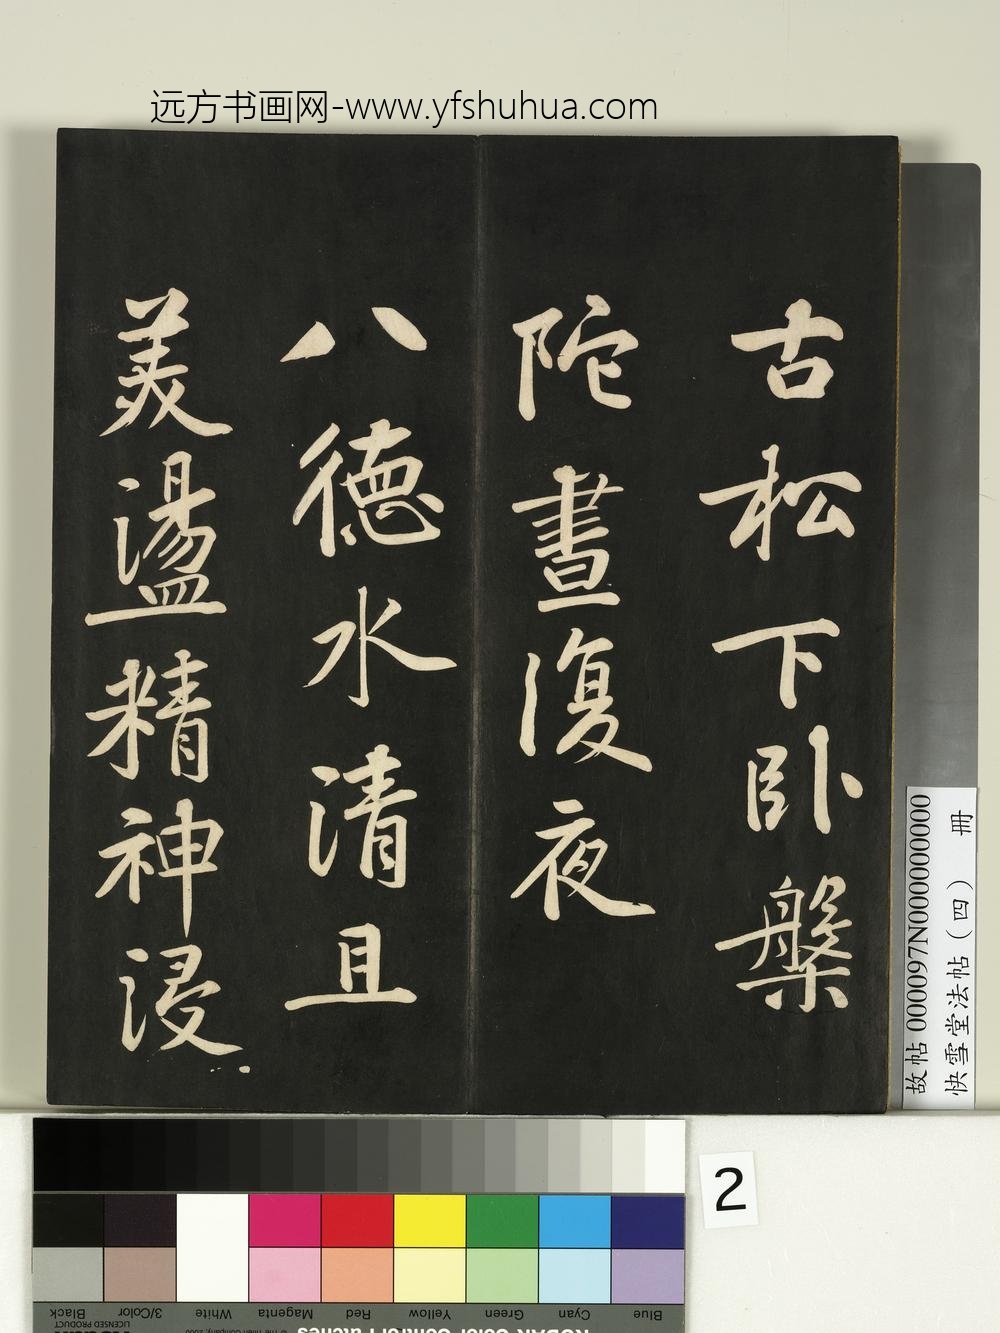 远方书画网-www.yfshuhua.com
古松下卧槃
陀晝復夜
八德水清且
美盪精神浸
故帖 000097N000000000
快雪堂法帖（四） 冊
2
Blue Cyan Green Yellow Red Magenta White 3/Color Black
KODAK Color Control Patches
LICENSED PRODUCT